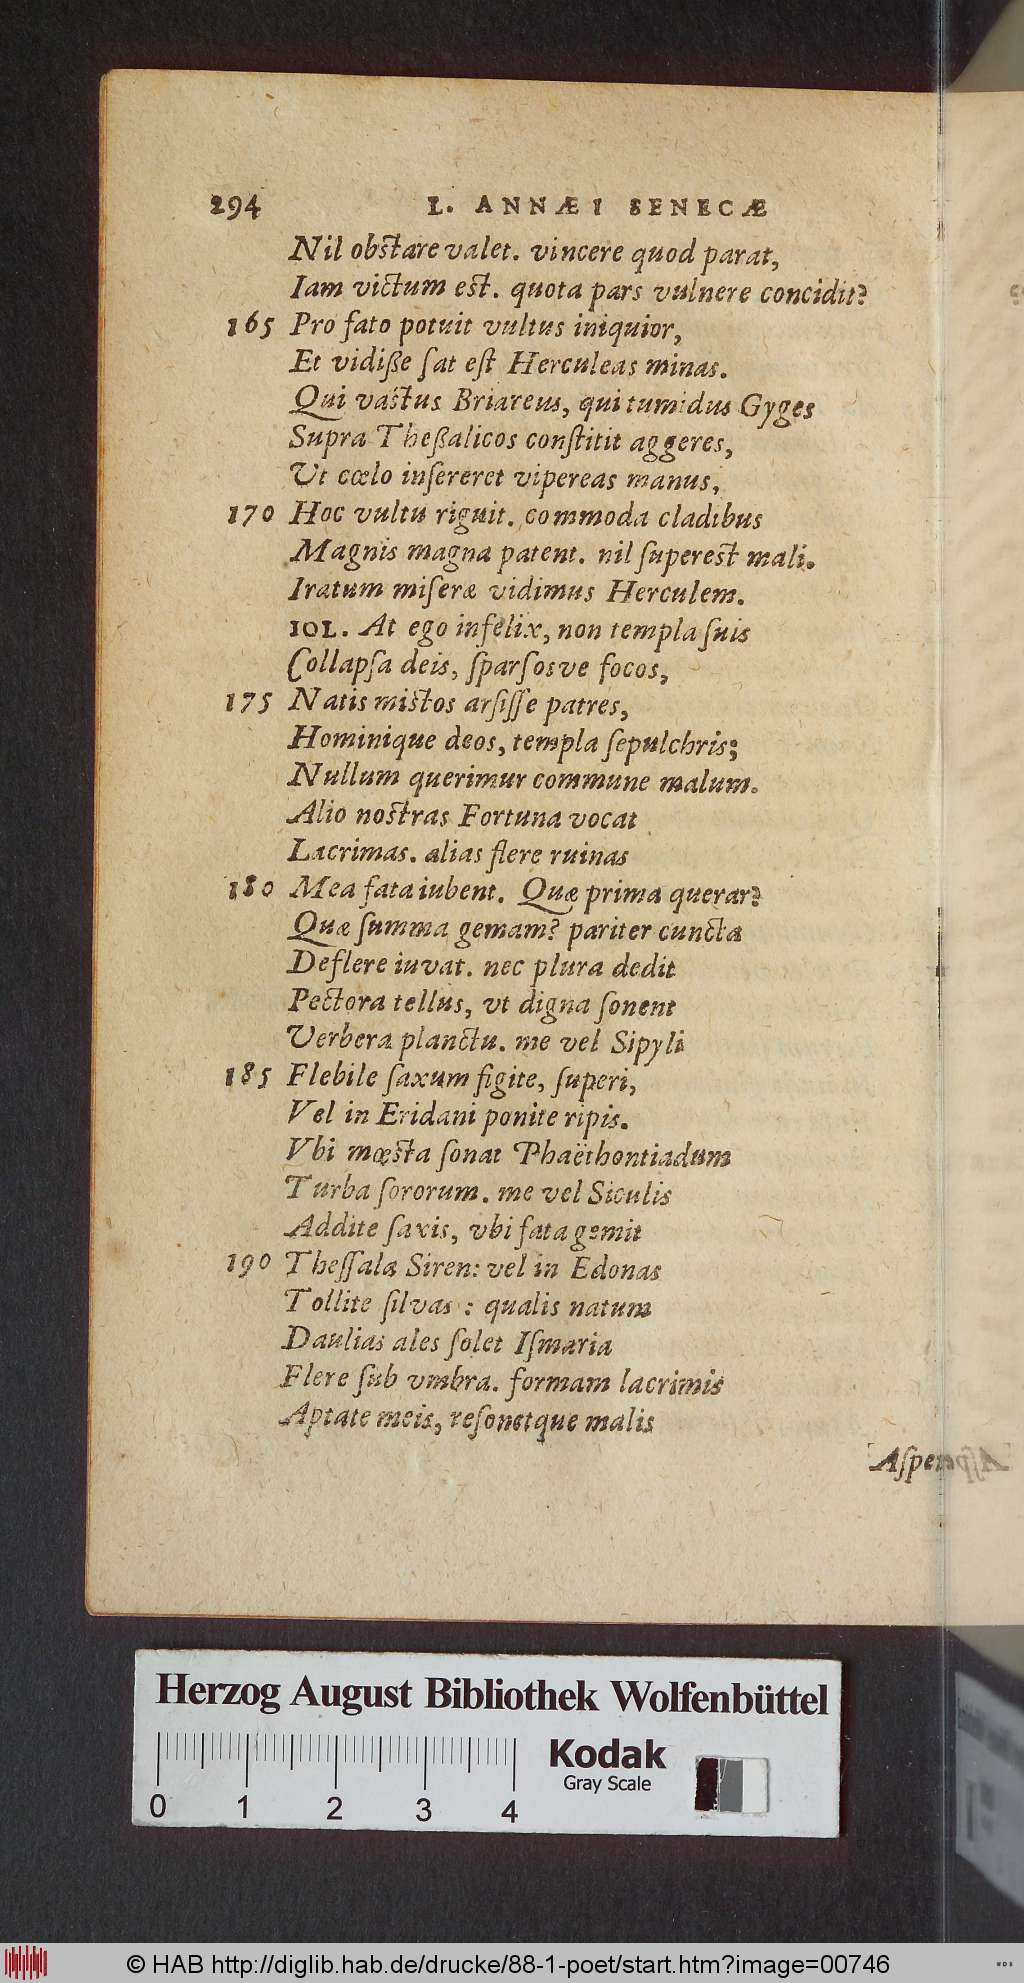 294 L. ANNÆI SENECÆ
Nil obstare valet. vincere quod parat,
Iam victum est. quota pars vulnere concidit?
165 Pro fato potuit vultus iniquior,
Et vidiße ſat eſt Herculeas minas.
Qui vastus Briareus, qui tumidus Gyges
Supra Theßalicos conſtitit aggeres,
Ut cœlo inſereret vipereas manus,
170 Hoc vultu riguit. commoda cladibus
Magnis magna patent. nil ſuperest mali.
Iratum miſeræ vidimus Herculem.
IOL. At ego infelix, non templa ſuis
Collapſa deis, ſparſosve focos,
175 Natis mistos arſiſſe patres,
Hominique deos, templa ſepulchris;
Nullum querimur commune malum.
Alio nostras Fortuna vocat
Lacrimas. alias flere ruinas
180 Mea fata iubent. Quæ prima querar?
Quæ ſumma gemam? pariter cuncta
Deflere iuvat. nec plura dedit
Pectora tellus, vt digna ſonent
Verbera planctu. me vel Sipyli
185 Flebile ſaxum figite, ſuperi,
Vel in Eridani ponite ripis.
Vbi mœsta ſonat Phaëthontiadum
Turba ſororum. me vel Siculis
Addite ſaxis, vbi fata gemit
190 Theſſala Siren: vel in Edonas
Tollite ſilvas : qualis natum
Daulias ales ſolet Iſmaria
Flere ſub vmbra. formam lacrimis
Aptate meis, reſonetque malis
Aſpera
Herzog August Bibliothek Wolfenbüttel
Kodak
Gray Scale
0 1 2 3 4
© HAB http://diglib.hab.de/drucke/88-1-poet/start.htm?image=00746